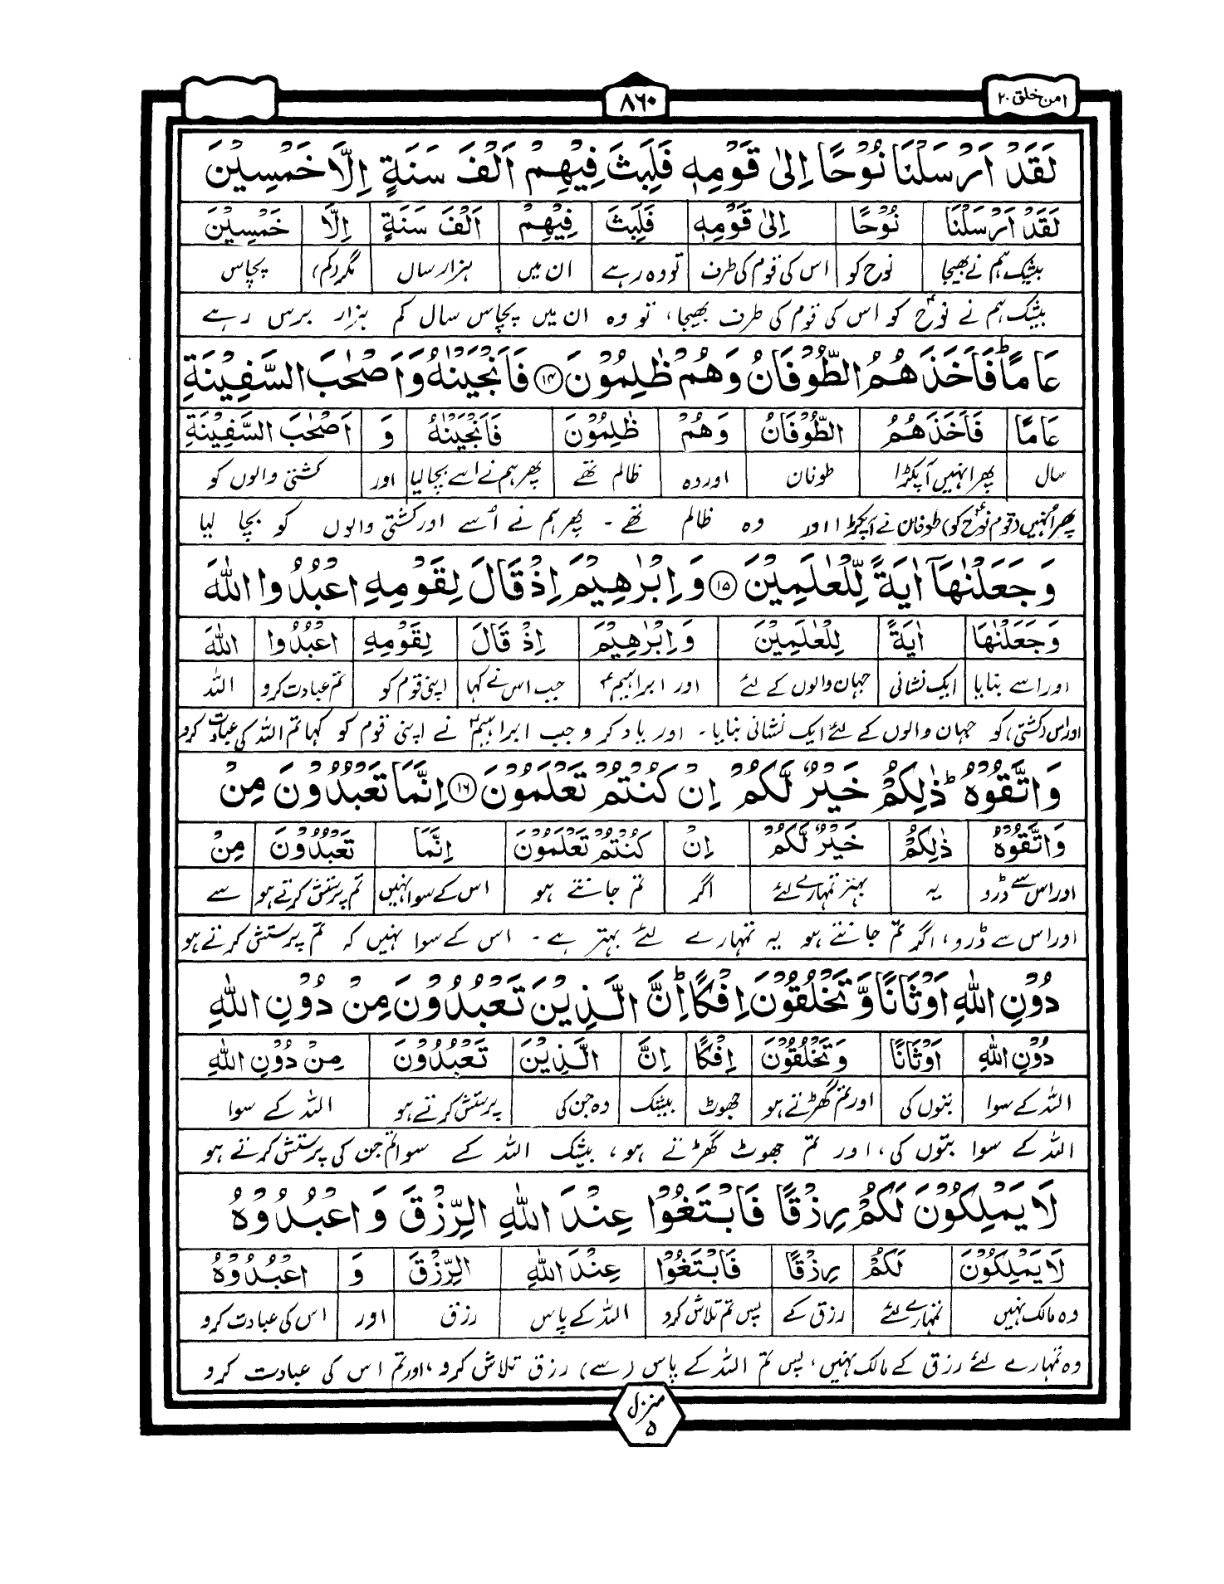 امن خلق ۲۰
۸۶۰
لَقَدْ اَرْسَلْنَا نُوْحًا اِلٰى قَوْمِهٖ فَلَبِثَ فِيْهِمْ اَلْفَ سَنَةٍ اِلَّا خَمْسِيْنَ
لَقَدْ اَرْسَلْنَا نُوْحًا اِلٰى قَوْمِهٖ فَلَبِثَ فِيْهِمْ اَلْفَ سَنَةٍ اِلَّا خَمْسِيْنَ
بیشک ہم نے بھیجا نوح کو اس کی قوم کی طرف تو وہ رہے ان میں ہزار سال مگر (کم) پچاس
بیشک ہم نے نوحؑ کو اس کی قوم کی طرف بھیجا، تو وہ ان میں پچاس سال کم ہزار برس رہے
عَامًا ؕ فَاَخَذَهُمُ الطُّوْفَانُ وَهُمْ ظٰلِمُوْنَ ۱۴ فَاَنْجَيْنٰهُ وَاَصْحٰبَ السَّفِيْنَةِ
عَامًا فَاَخَذَهُمُ الطُّوْفَانُ وَهُمْ ظٰلِمُوْنَ فَاَنْجَيْنٰهُ وَ اَصْحٰبَ السَّفِيْنَةِ
سال پھر انہیں آپکڑا طوفان اور وہ ظالم تھے پھر ہم نے اسے بچا لیا اور کشتی والوں کو
پھر انہیں (قوم نوحؑ کو) طوفان نے آپکڑا اور وہ ظالم تھے ۔ پھر ہم نے اُسے اور کشتی والوں کو بچا لیا
وَجَعَلْنٰهَآ اٰيَةً لِّلْعٰلَمِيْنَ ۱۵ وَاِبْرٰهِيْمَ اِذْ قَالَ لِقَوْمِهِ اعْبُدُوا اللّٰهَ
وَجَعَلْنٰهَا اٰيَةً لِّلْعٰلَمِيْنَ وَاِبْرٰهِيْمَ اِذْ قَالَ لِقَوْمِهِ اعْبُدُوا اللّٰهَ
اور اسے بنایا ایک نشانی جہان والوں کے لئے اور ابراہیمؑ جب اس نے کہا اپنی قوم کو تم عبادت کرو اللہ
اور اس (کشتی) کو جہان والوں کے لئے ایک نشانی بنایا ۔ اور یاد کرو جب ابراہیمؑ نے اپنی قوم کو کہا تم اللہ کی عبادت کرو
وَاتَّقُوْهُ ؕ ذٰلِكُمْ خَيْرٌ لَّكُمْ اِنْ كُنْتُمْ تَعْلَمُوْنَ ۱۶ اِنَّمَا تَعْبُدُوْنَ مِنْ
وَاتَّقُوْهُ ذٰلِكُمْ خَيْرٌ لَّكُمْ اِنْ كُنْتُمْ تَعْلَمُوْنَ اِنَّمَا تَعْبُدُوْنَ مِنْ
اور اس سے ڈرو یہ بہتر تمہارے لئے اگر تم جانتے ہو اس کے سوا نہیں تم پرستش کرتے ہو سے
اور اس سے ڈرو، اگر تم جانتے ہو یہ تمہارے لئے بہتر ہے ۔ اس کے سوا نہیں کہ تم پرستش کرتے ہو
دُوْنِ اللّٰهِ اَوْثَانًا وَّتَخْلُقُوْنَ اِفْكًا ؕ اِنَّ الَّذِيْنَ تَعْبُدُوْنَ مِنْ دُوْنِ اللّٰهِ
دُوْنِ اللّٰهِ اَوْثَانًا وَّتَخْلُقُوْنَ اِفْكًا اِنَّ الَّذِيْنَ تَعْبُدُوْنَ مِنْ دُوْنِ اللّٰهِ
اللہ کے سوا بتوں کی اور تم گھڑتے ہو جھوٹ بیشک وہ جن کی پرستش کرتے ہو اللہ کے سوا
اللہ کے سوا بتوں کی، اور تم جھوٹ گھڑتے ہو، بیشک اللہ کے سوا تم جن کی پرستش کرتے ہو
لَا يَمْلِكُوْنَ لَكُمْ رِزْقًا فَابْتَغُوْا عِنْدَ اللّٰهِ الرِّزْقَ وَاعْبُدُوْهُ
لَا يَمْلِكُوْنَ لَكُمْ رِزْقًا فَابْتَغُوْا عِنْدَ اللّٰهِ الرِّزْقَ وَ اعْبُدُوْهُ
وہ مالک نہیں تمہارے لئے رزق کے پس تم تلاش کرو اللہ کے پاس رزق اور اس کی عبادت کرو
وہ تمہارے لئے رزق کے مالک نہیں، پس تم اللہ کے پاس (سے) رزق تلاش کرو، اور تم اس کی عبادت کرو
منزل
۵